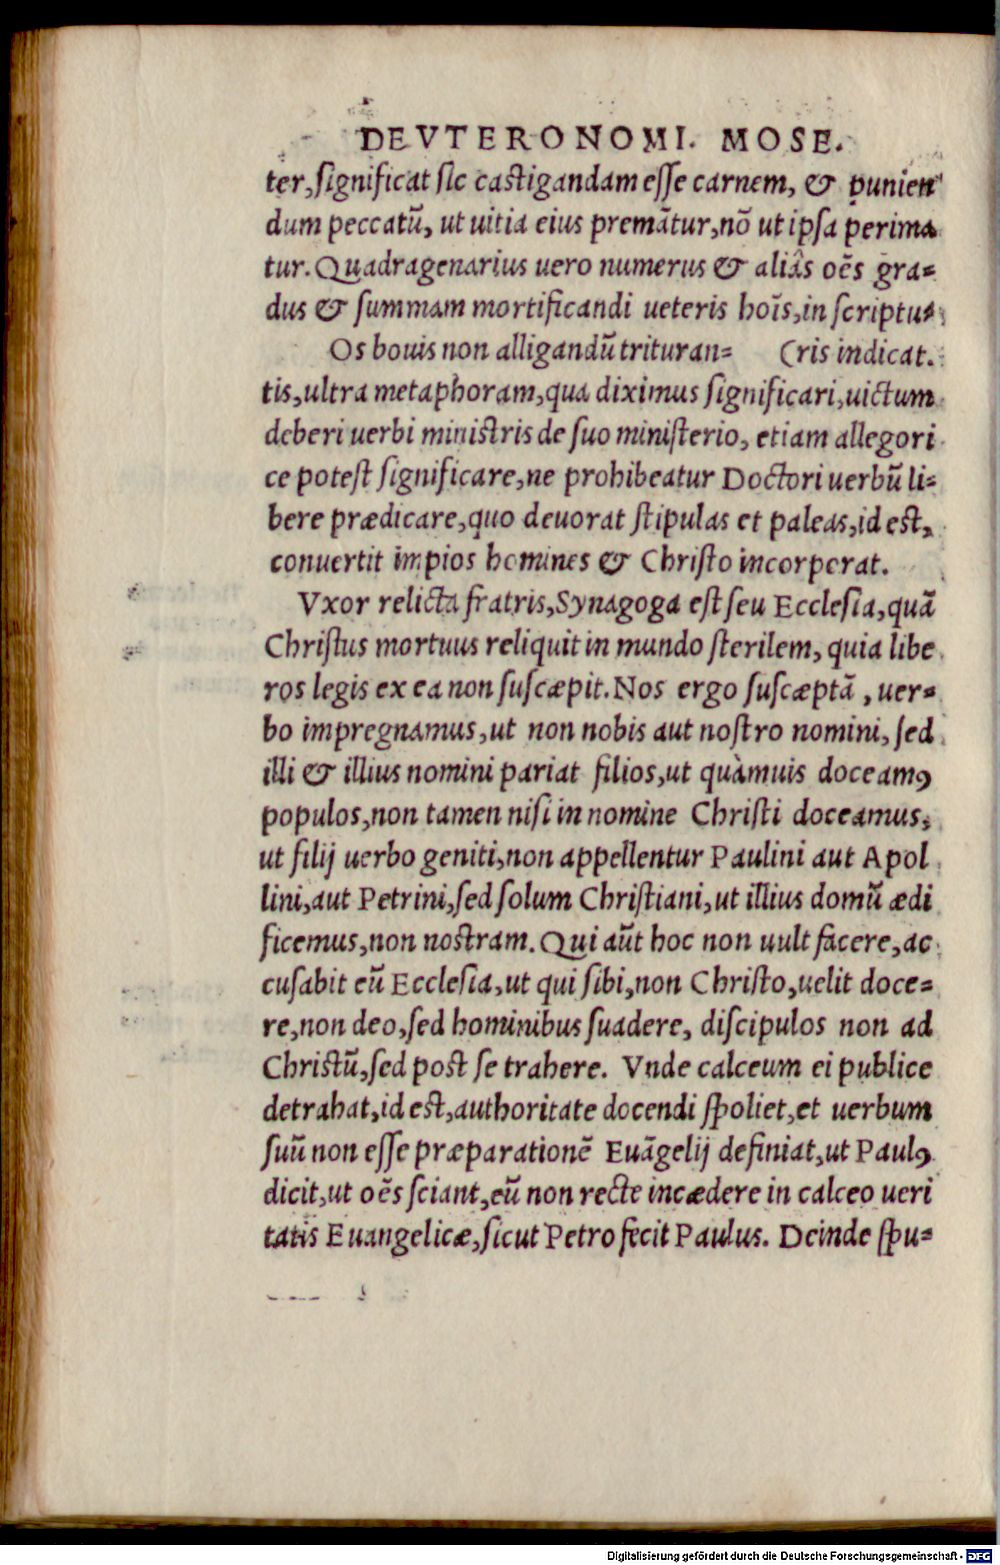 DEVTERONOMI. MOSE.
ter, significat sic castigandam esse carnem, & punien
dum peccatū, ut uitia eius premātur, nō ut ipsa perima
tur. Quadragenarius uero numerus & aliâs oēs gra=
dus & summam mortificandi ueteris hoīs, in scriptu=
Os bouis non alligandū trituran= (ris indicat.
tis, ultra metaphoram, qua diximus significari, uictum
deberi uerbi ministris de suo ministerio, etiam allegori
ce potest significare, ne prohibeatur Doctori uerbū li=
bere prædicare, quo deuorat stipulas et paleas, id est,
conuertit impios homines & Christo incorporat.
Vxor relicta fratris, Synagoga est seu Ecclesia, quā
Christus mortuus reliquit in mundo sterilem, quia libe
ros legis ex ea non suscæpit. Nos ergo suscæptā, uer=
bo impregnamus, ut non nobis aut nostro nomini, sed
illi & illius nomini pariat filios, ut quàmuis doceamꝰ
populos, non tamen nisi in nomine Christi doceamus,
ut filij uerbo geniti, non appellentur Paulini aut Apol
lini, aut Petrini, sed solum Christiani, ut illius domū ædi
ficemus, non nostram. Qui aūt hoc non uult facere, ac
cusabit eū Ecclesia, ut qui sibi, non Christo, uelit doce=
re, non deo, sed hominibus suadere, discipulos non ad
Christū, sed post se trahere. Vnde calceum ei publice
detrahat, id est, authoritate docendi spoliet, et uerbum
suū non esse præparationē Euāgelij definiat, ut Paulꝰ
dicit, ut oēs sciant, eū non recte incædere in calceo ueri
tatis Euangelicæ, sicut Petro fecit Paulus. Deinde spu=
Digitalisierung gefördert durch die Deutsche Forschungsgemeinschaft - DFG